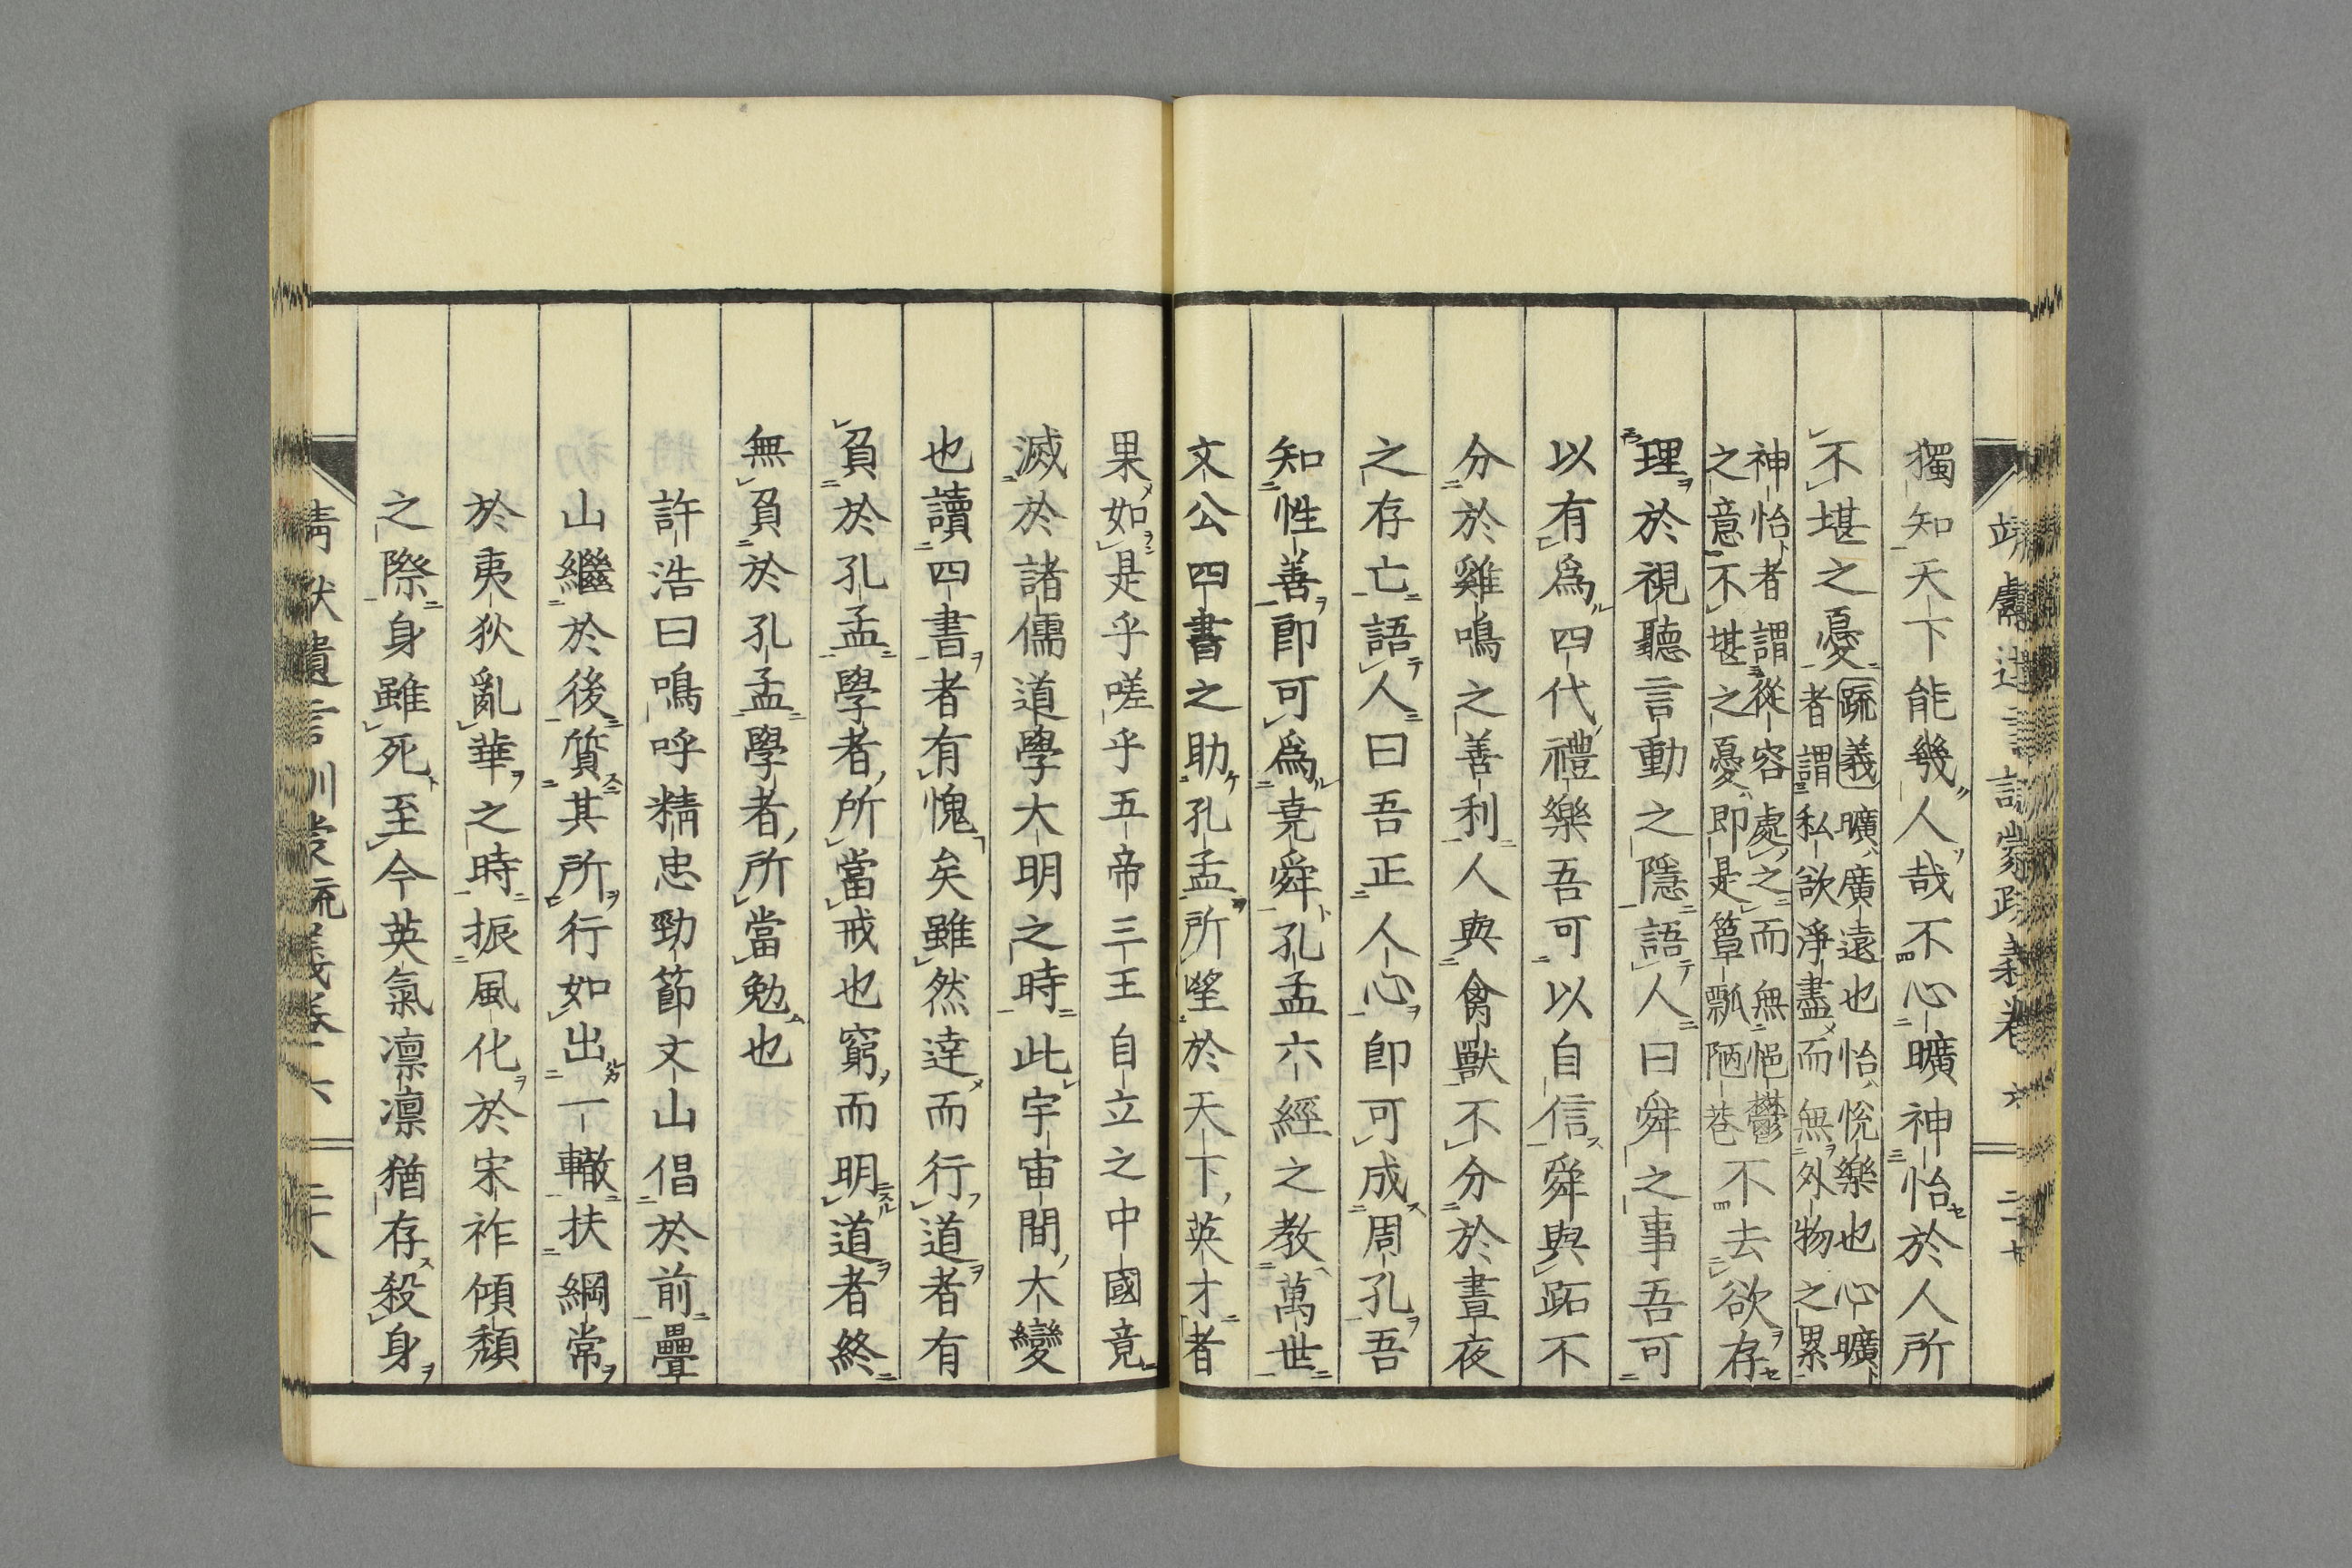 獨知天下能幾人哉不心曠神怡於人所
不堪之憂者謂私欲淨盡而無外物之累
疏義曠廣遠也怡悅樂也心曠
神怡者謂從容處之而無悒鬱
之意不堪之憂即是簞瓢陋巷
不去欲存
理於視聽言動之隱語人曰舜之事吾可
以有爲四代禮樂吾可以自信舜與跖不
分於雞鳴之善利人與禽獸不分於晝夜
之存亡語人曰吾正人心卽可成周孔吾
知性善卽可爲堯舜孔孟六經之教萬世
文公四書之助孔孟所望於天下英才者
果如是乎嗟乎五帝三王自立之中國竟
滅於諸儒道學大明之時此宇宙間大變
也讀四書者有愧矣雖然達而行道者有
負於孔孟學者所當戒也窮而明道者終
無負於孔孟學者所當勉也
許浩曰鳴呼精忠勁節文山倡於前疊
山繼於後質其所行如出一轍扶綱常
於夷狄亂華之時振風化於宋祚傾頹
之際身雖死至今英氣凛凛猶存殺身